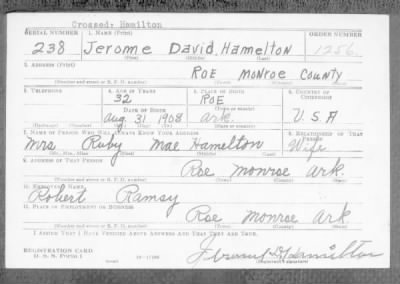 Crossed: Hamilton
SERIAL NUMBER 1. NAME (Print) ORDER NUMBER
238 Jerome David Hamelton 1256
(First) (Middle) (Last)
2. ADDRESS (Print)
ROE MONROE COUNTY
(Number and street or R. F. D. number) (Town) (County) (State)
3. TELEPHONE 4. AGE IN YEARS 5. PLACE OF BIRTH 6. COUNTRY OF CITIZENSHIP
32 ROE
DATE OF BIRTH (Town or county)
Aug. 31 1908 Ark. U.S.A
(Mo.) (Day) (Yr.) (State or country)
7. NAME OF PERSON WHO WILL ALWAYS KNOW YOUR ADDRESS 8. RELATIONSHIP OF THAT PERSON
Mrs Ruby Mae Hamelton Wife
(Mr., Mrs., Miss) (First) (Middle) (Last)
9. ADDRESS OF THAT PERSON
Roe monroe ark.
(Number and street or R. F. D. number) (Town) (County) (State)
10. EMPLOYER'S NAME
Robert Ramsy
11. PLACE OF EMPLOYMENT OR BUSINESS
Roe monroe ark
(Number and street or R. F. D. number) (Town) (County) (State)
I AFFIRM THAT I HAVE VERIFIED ABOVE ANSWERS AND THAT THEY ARE TRUE.
REGISTRATION CARD
D. S. S. FORM 1
(over) 16-17105
Jerome D Hamilton
(Registrant's signature)